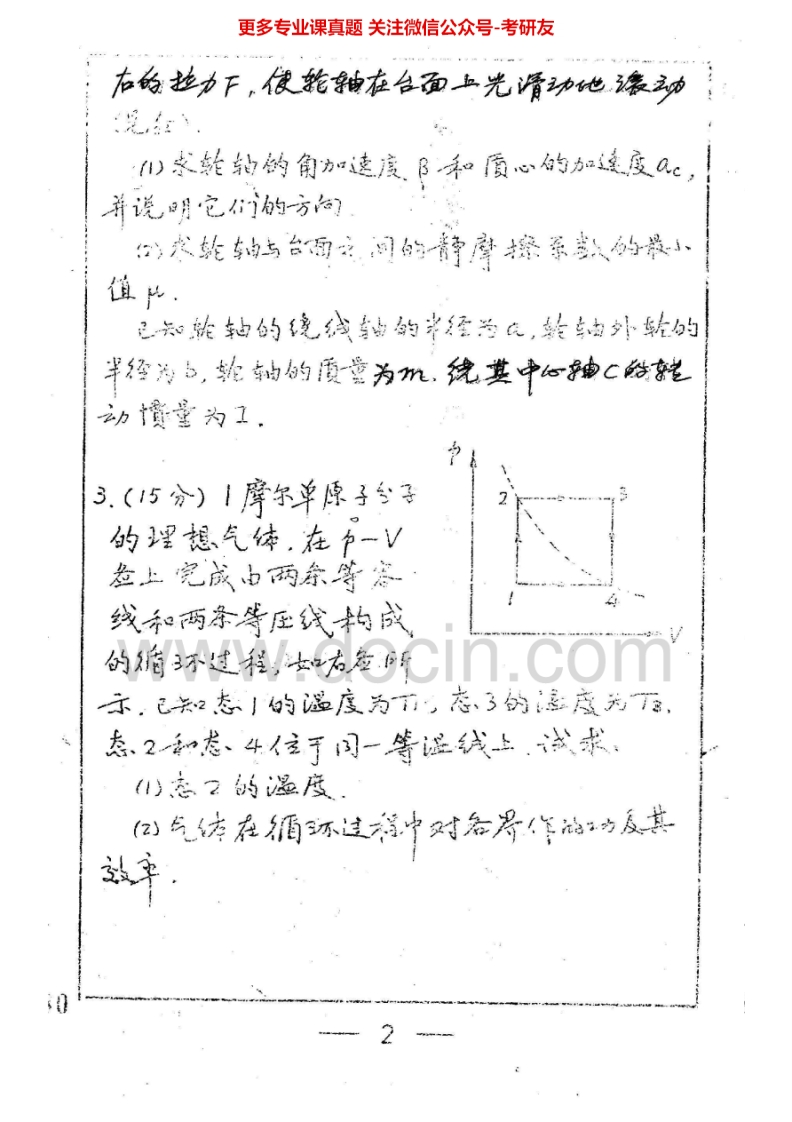 更多专业课真题 关注微信公众号-考研友
右的拉力F,使轮轴在台面上无滑动地滚动
(见图).
(1)求轮轴的角加速度β和质心的加速度ac,
并说明它们的方向
(2)求轮轴与台面之间的静摩擦系数的最小
值μ.
已知轮轴的绕线轴的半径为a,轮轴外轮的
半径为b,轮轴的质量为m.绕其中心轴C的转
动惯量为I.
3.(15分)1摩尔单原子分子
的理想气体.在p—V
图上完成由两条等容
线和两条等压线构成
的循环过程,如右图所
示.已知态1的温度为T1,态3的温度为T3.
态2和态4位于同一等温线上.试求.
(1)态2的温度.
(2)气体在循环过程中对外界作的功及其
效率.
p
2 3
1 4
V
www.docin.com
— 2 —